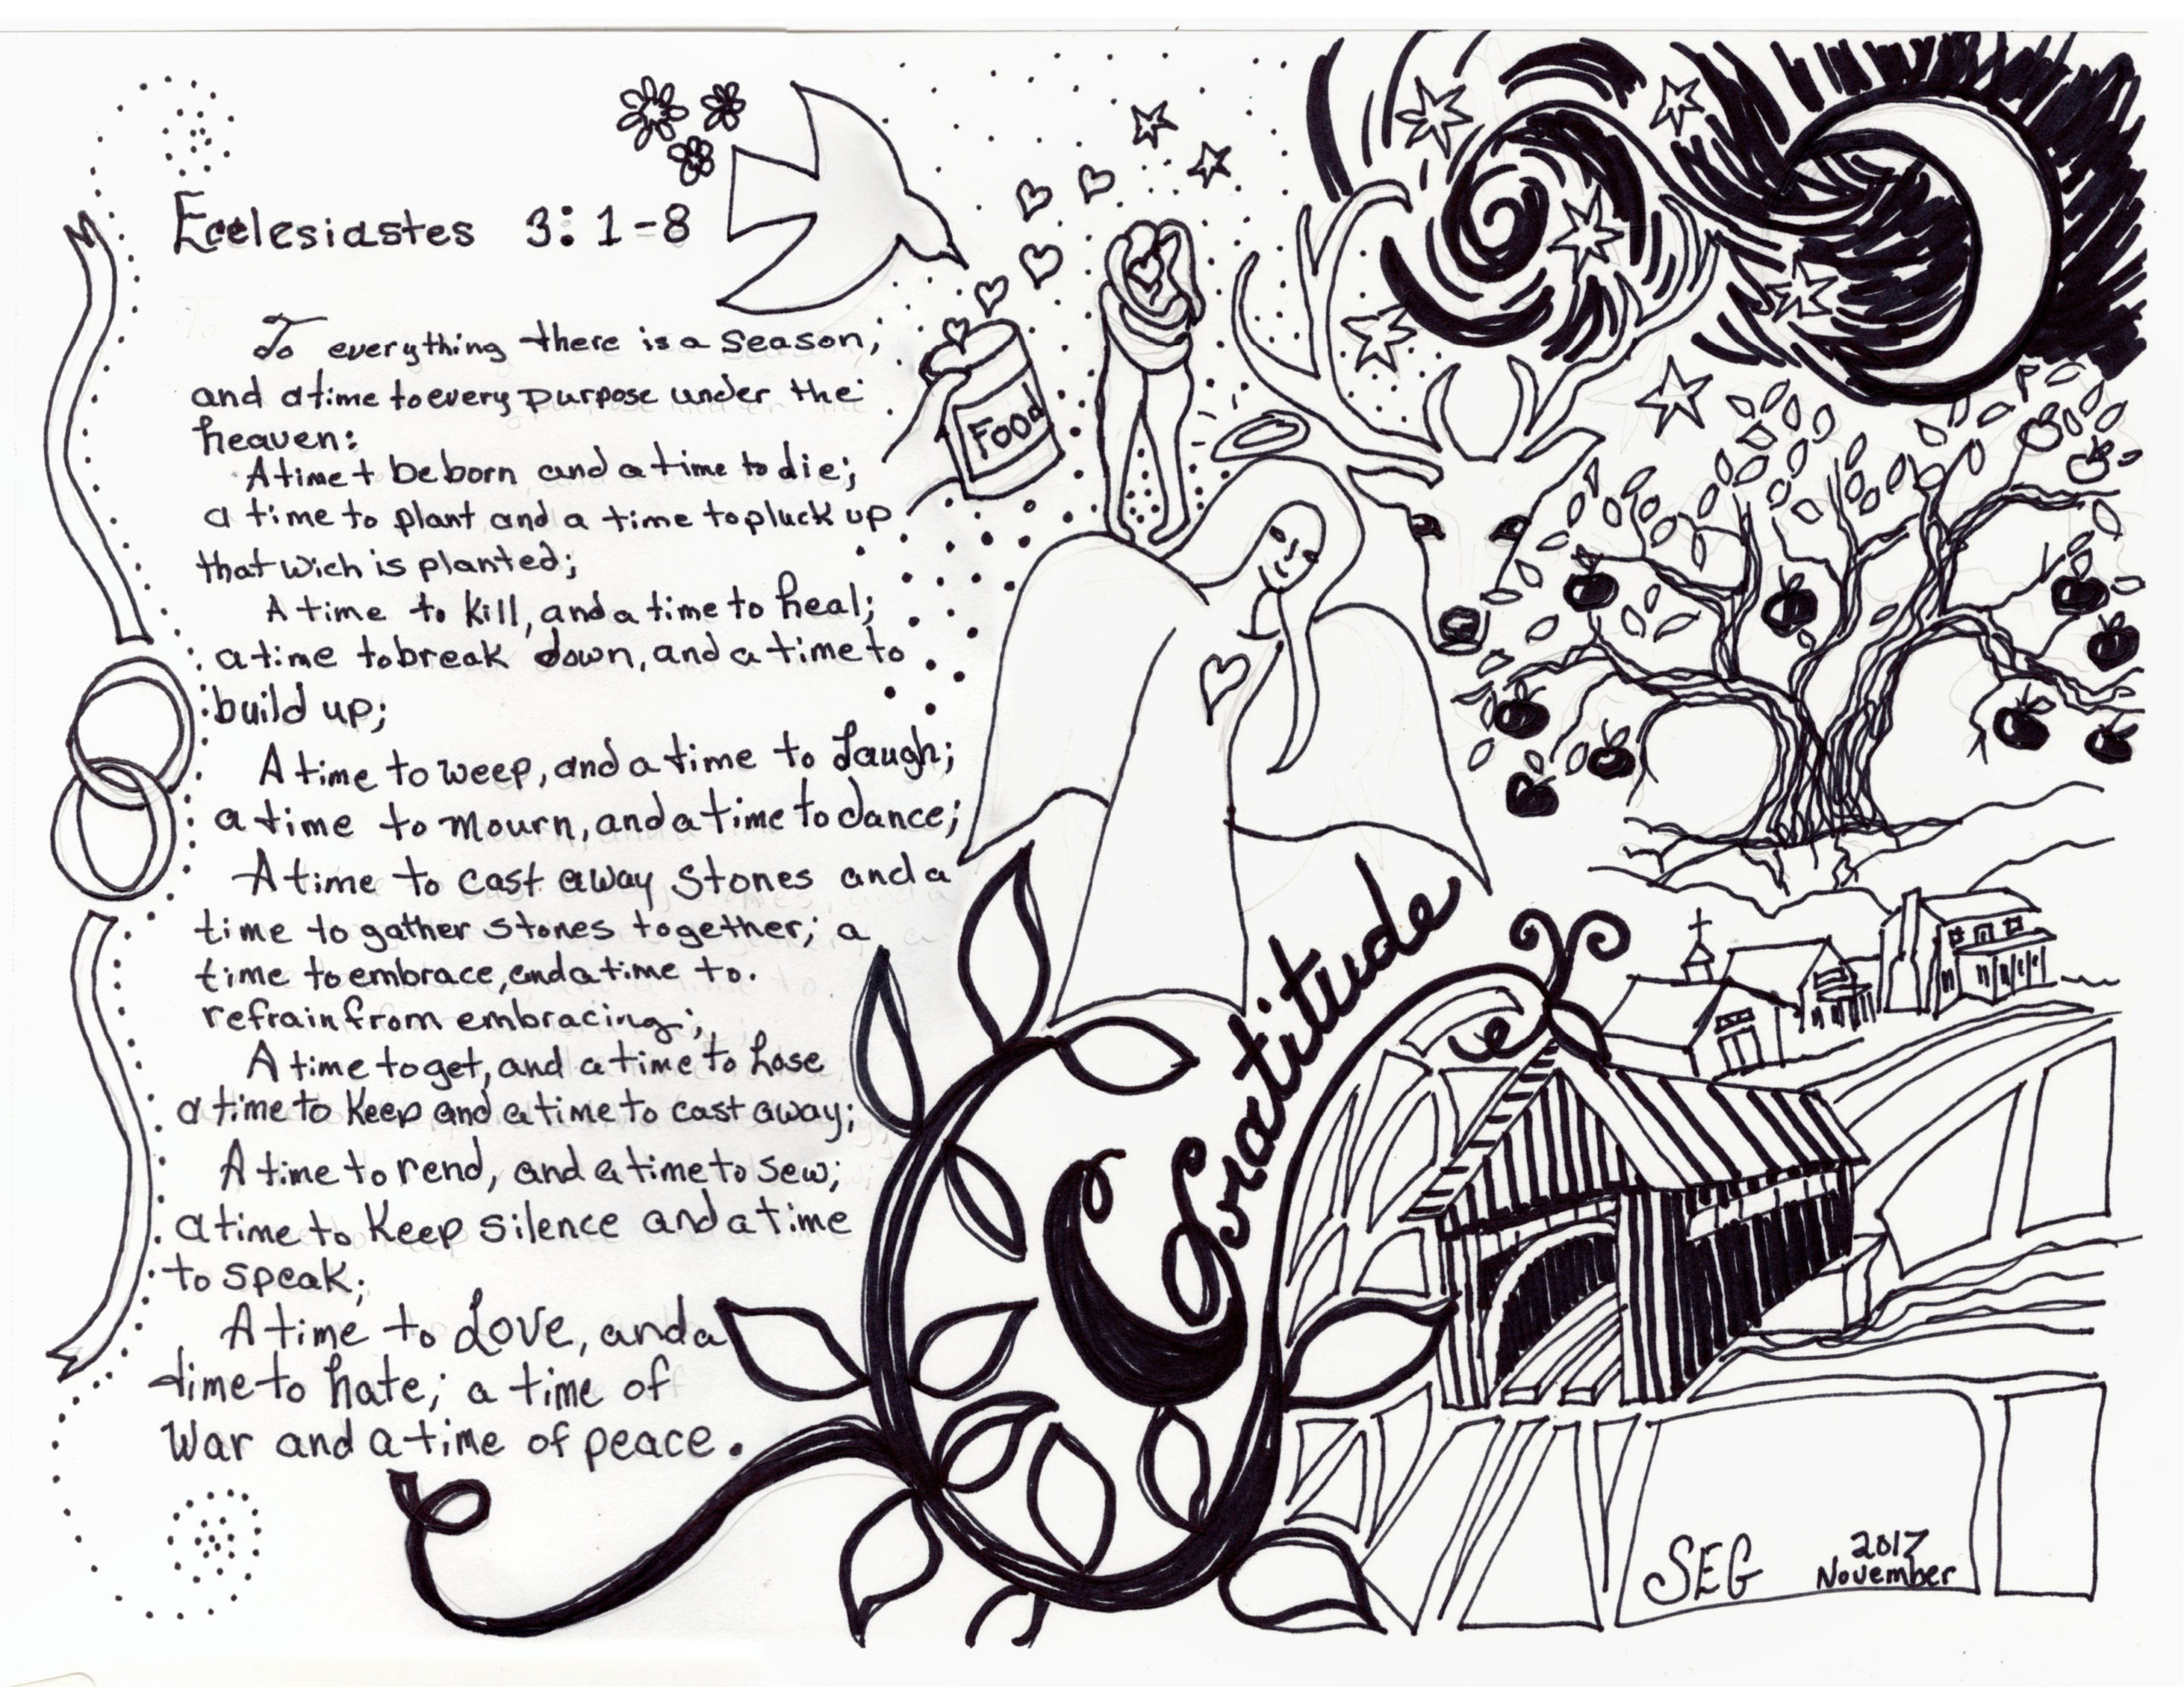 Ecclesiastes 3:1-8
To everything there is a season;
and a time to every purpose under the
heaven:
A time t be born and a time to die;
a time to plant and a time to pluck up
that wich is planted;
A time to kill, and a time to heal;
a time to break down, and a time to
build up;
A time to weep, and a time to laugh;
a time to mourn, and a time to dance;
A time to cast away stones and a
time to gather stones together; a
time to embrace, and a time to.
refrain from embracing;
A time to get, and a time to lose
a time to keep and a time to cast away;
A time to rend, and a time to sew;
a time to keep silence and a time
to speak;
A time to love, and a
time to hate; a time of
war and a time of peace.
Food
Gratitude
SEG
2017
November